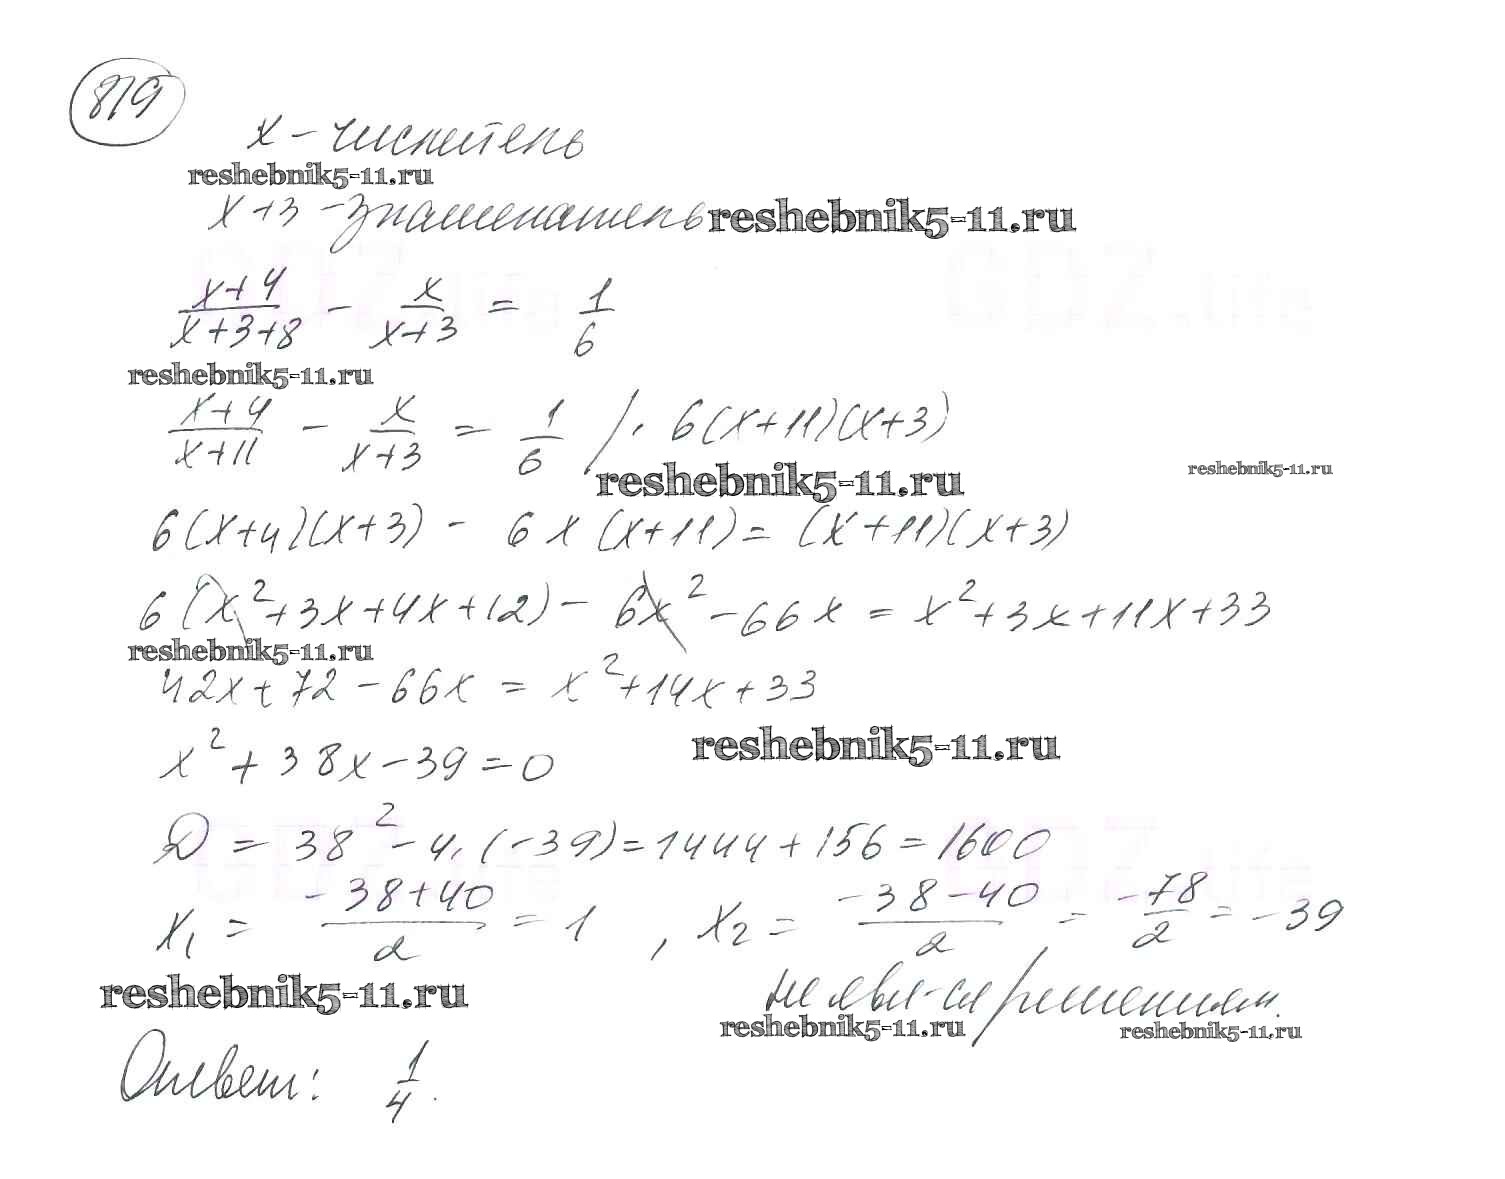 819
x - числитель
reshebnik5-11.ru
x+3 - знаменатель reshebnik5-11.ru
(x+4)/(x+3+8) - x/(x+3) = 1/6
reshebnik5-11.ru
(x+4)/(x+11) - x/(x+3) = 1/6 /· 6(x+11)(x+3)
reshebnik5-11.ru reshebnik5-11.ru
6(x+4)(x+3) - 6x(x+11) = (x+11)(x+3)
6(x²+3x+4x+12) - 6x² - 66x = x²+3x+11x+33
reshebnik5-11.ru
42x+72-66x = x²+14x+33
x²+38x-39=0 reshebnik5-11.ru
D = 38²-4·(-39)=1444+156=1600
x₁ = (-38+40)/2 = 1, x₂ = (-38-40)/2 = -78/2 = -39
reshebnik5-11.ru не явл-ся решением.
reshebnik5-11.ru reshebnik5-11.ru
Ответ: 1/4.